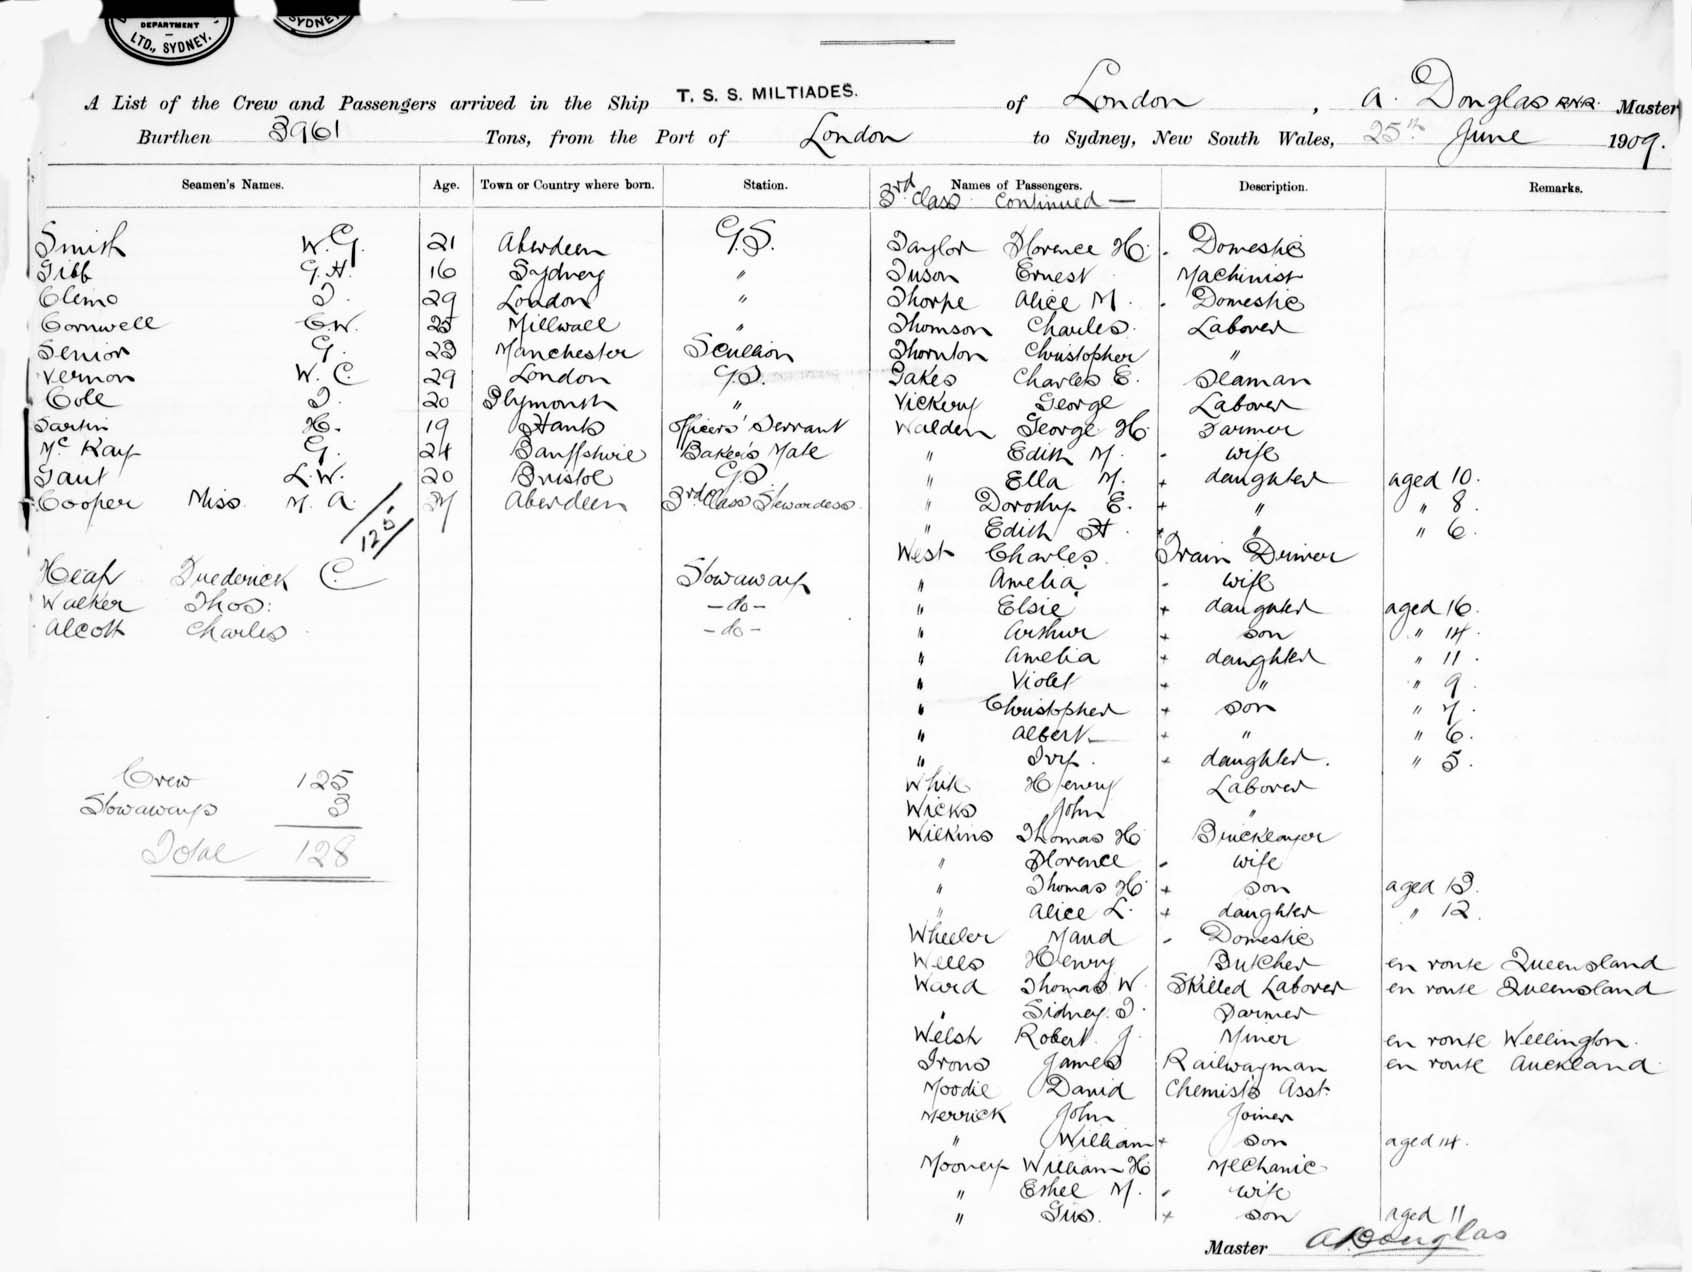 DEPARTMENT
LTD., SYDNEY.
SYDNEY
A List of the Crew and Passengers arrived in the Ship T. S. S. MILTIADES. of London, A. Douglas RNR. Master
Burthen 3961 Tons, from the Port of London to Sydney, New South Wales, 25th June 1909.
Seamen's Names. Age. Town or Country where born. Station. Names of Passengers. Description. Remarks.
3rd Class Continued —
Smith W. G. 21 Aberdeen G.S. Taylor Florence H. - Domestic
Gibb G. H. 16 Sydney " Tuson Ernest Machinist
Clems 29 London " Thorpe Alice M. - Domestic
Cornwell C.W. 25 Millwall " Thomson Charles. Laborer
Senior G. 23 Manchester Scullion Thornton Christopher "
Vernon W. C. 29 London G.S. Charles E. Seaman
Cole 20 Plymouth " Vickery George Laborer
Sartin H. 19 Hants Officers' Servant Walden George H. Farmer
McKay G. 24 Banffshire Baker's Mate " Edith M. - wife
Gaut L.W. 20 Bristol G.S. " Ella M. + daughter aged 10.
Cooper Miss M. A. Aberdeen 3rd Class Stewardess. " Dorothy E. + " " 8.
125
" Edith H. + " " 6.
West Charles. Train Driver
Heap Frederick C. Stowaway " Amelia - wife
Walker Thos: -do- " Elsie + daughter aged 16.
Alcott Charles -do- " Arthur + son " 14.
" Amelia + daughter " 11.
" Violet + " " 9.
" Christopher + son " 7.
" Albert + " " 6.
" Ivy. + daughter. " 5.
Crew 125 White Henry Laborer
Stowaways 3 Wicks John "
Total 128 Wilkins Thomas H. Bricklayer
" Florence - wife
" Thomas H. + son aged 13.
" Alice L. + daughter " 12.
Wheeler Maud - Domestic
Wells Henry Butcher en route Queensland
Ward Thomas W. Skilled Laborer en route Queensland
" Sidney Farmer
Welsh Robert J. Miner en route Wellington.
Irons James Railwayman en route Auckland.
Moodie David Chemist's Asst.
Merrick John Joiner
" William + son aged 14.
Mooney William H. Mechanic
" Ethel M. - wife
" Gus. + son aged 11
Master A Douglas